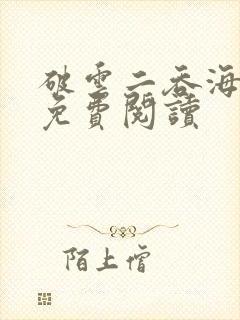 破雲二吞海
免費閱讀
陌上僧